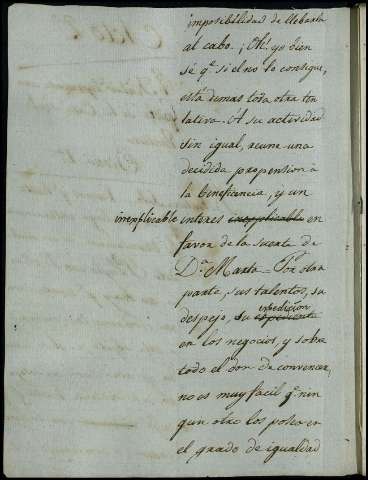 imposibilidad de llebarla
al cabo. ¡Oh! yo bien
sé q.e si el no lo consigue,
está demas toda otra ten
tativa. A su actividad
sin igual, reune una
decidida propension á
la beneficencia, y un
inexplicable interes inexplicable en
favor de la suerte de
D.a Marta = Por otra
parte, sus talentos, su
despejo, su espediente
expedicion
en los negocios, y sobre
todo el don de convencer,
no es muy facil q.e nin
gun otro los poseo en
el grado de igualdad